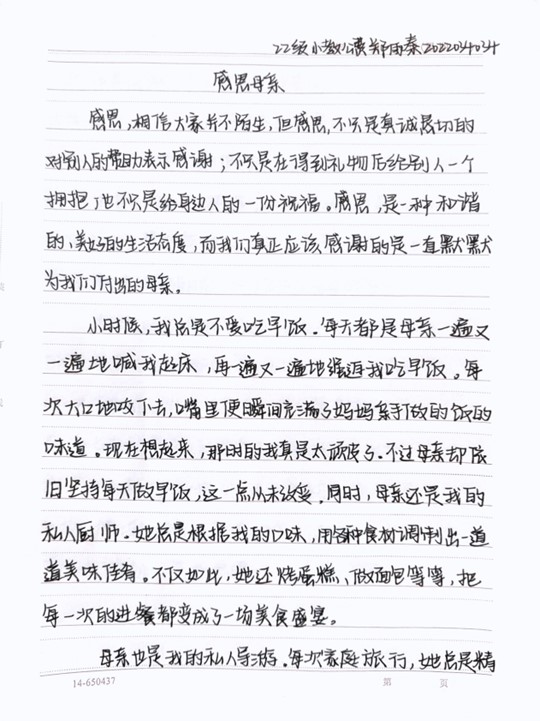 22级小教公费郑雨秦2022034034
感恩母亲
感恩，相信大家并不陌生，但感恩，不只是真诚恳切的
对别人的帮助表示感谢；不只是在得到礼物后给别人一个
拥抱；也不只是给身边人的一份祝福。感恩，是一种和谐
的、美好的生活态度，而我们真正应该感谢的是一直默默
为我们付出的母亲。
小时候，我总是不爱吃早饭。每天都是母亲一遍又
一遍地喊我起床，再一遍又一遍地强迫我吃早饭。每
次大口地咬下去，嘴里便瞬间充满了妈妈亲手做的饭的
味道。现在想起来，那时的我真是太顽皮了。不过母亲却依
旧坚持每天做早饭，这一点从未改变。同时，母亲还是我的
私人厨师。她总是根据我的口味，用各种食材调制出一道
道美味佳肴。不仅如此，她还烤蛋糕、做面包等等，把
每一次的进餐都变成了一场美食盛宴。
母亲也是我的私人导游。每次家庭旅行，她总是精
14-650437 第 页